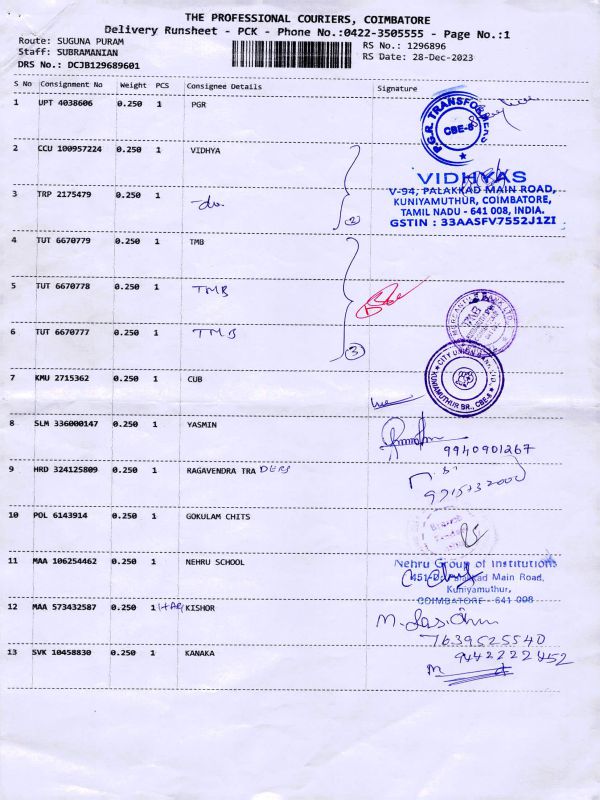 THE PROFESSIONAL COURIERS, COIMBATORE
Delivery Runsheet - PCK - Phone No.:0422-3505555 - Page No.:1
Route: SUGUNA PURAM
Staff: SUBRAMANIAN
DRS No.: DCJB129689601
RS No.: 1296896
RS Date: 28-Dec-2023
S No Consignment No Weight PCS Consignee Details Signature
1 UPT 4038606 0.250 1 PGR
P.G.R. TRANSFORMERS
CBE-8
2 CCU 100957224 0.250 1 VIDHYA
VIDHYAS
V-94, PALAKKAD MAIN ROAD,
KUNIYAMUTHUR, COIMBATORE,
TAMIL NADU - 641 008, INDIA.
GSTIN : 33AASFV7552J1ZI
3 TRP 2175479 0.250 1 do
2
4 TUT 6670779 0.250 1 TMB
5 TUT 6670778 0.250 1 TMB
6 TUT 6670777 0.250 1 TMB
3
7 KMU 2715362 0.250 1 CUB
CITY UNION BANK LTD.
KUNIYAMUTHUR BR., CBE-8
8 SLM 336000147 0.250 1 YASMIN
9940901267
9 HRD 324125809 0.250 1 RAGAVENDRA TRA DERS
10 POL 6143914 0.250 1 GOKULAM CHITS
11 MAA 106254462 0.250 1 NEHRU SCHOOL
Nehru Group of Institutions
451-D, Palakkad Main Road,
Kuniyamuthur,
COIMBATORE - 641 008
12 MAA 573432587 0.250 1 KISHOR
7639525540
13 SVK 10458830 0.250 1 KANAKA
9442222452